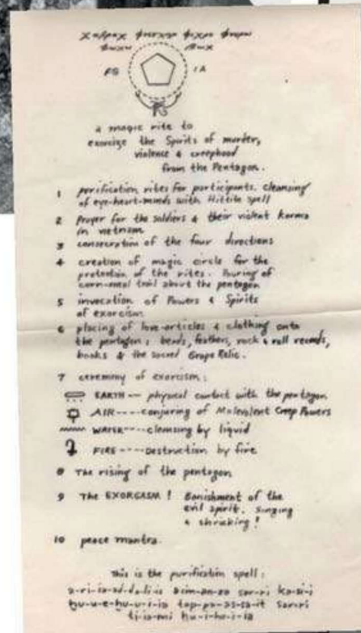 a magic rite to
exorcize the Spirits of murder,
violence & creephood
from the Pentagon.
1 purification rites for participants. cleansing
of eye-heart-minds with Hittite spell
2 prayer for the soldiers & their violent karma
in vietnam
3 consecration of the four directions
4 creation of magic circle for the
protection of the rites. Pouring of
corn-meal trail about the pentagon
5 invocation of Powers & Spirits
of exorcism
6 placing of love-articles & clothing onto
the pentagon; beads, feathers, rock & roll records,
books & the sacred Grope Relic.
7 ceremony of exorcism:
EARTH — physical contact with the pentagon
AIR---- conjuring of Malevolent Creep Powers
WATER---- cleansing by liquid
FIRE---- destruction by fire
8 The rising of the pentagon
9 The EXORGASM! Banishment of the
evil spirit. Singing
& shrieking!
10 peace mantra.
This is the purification spell: